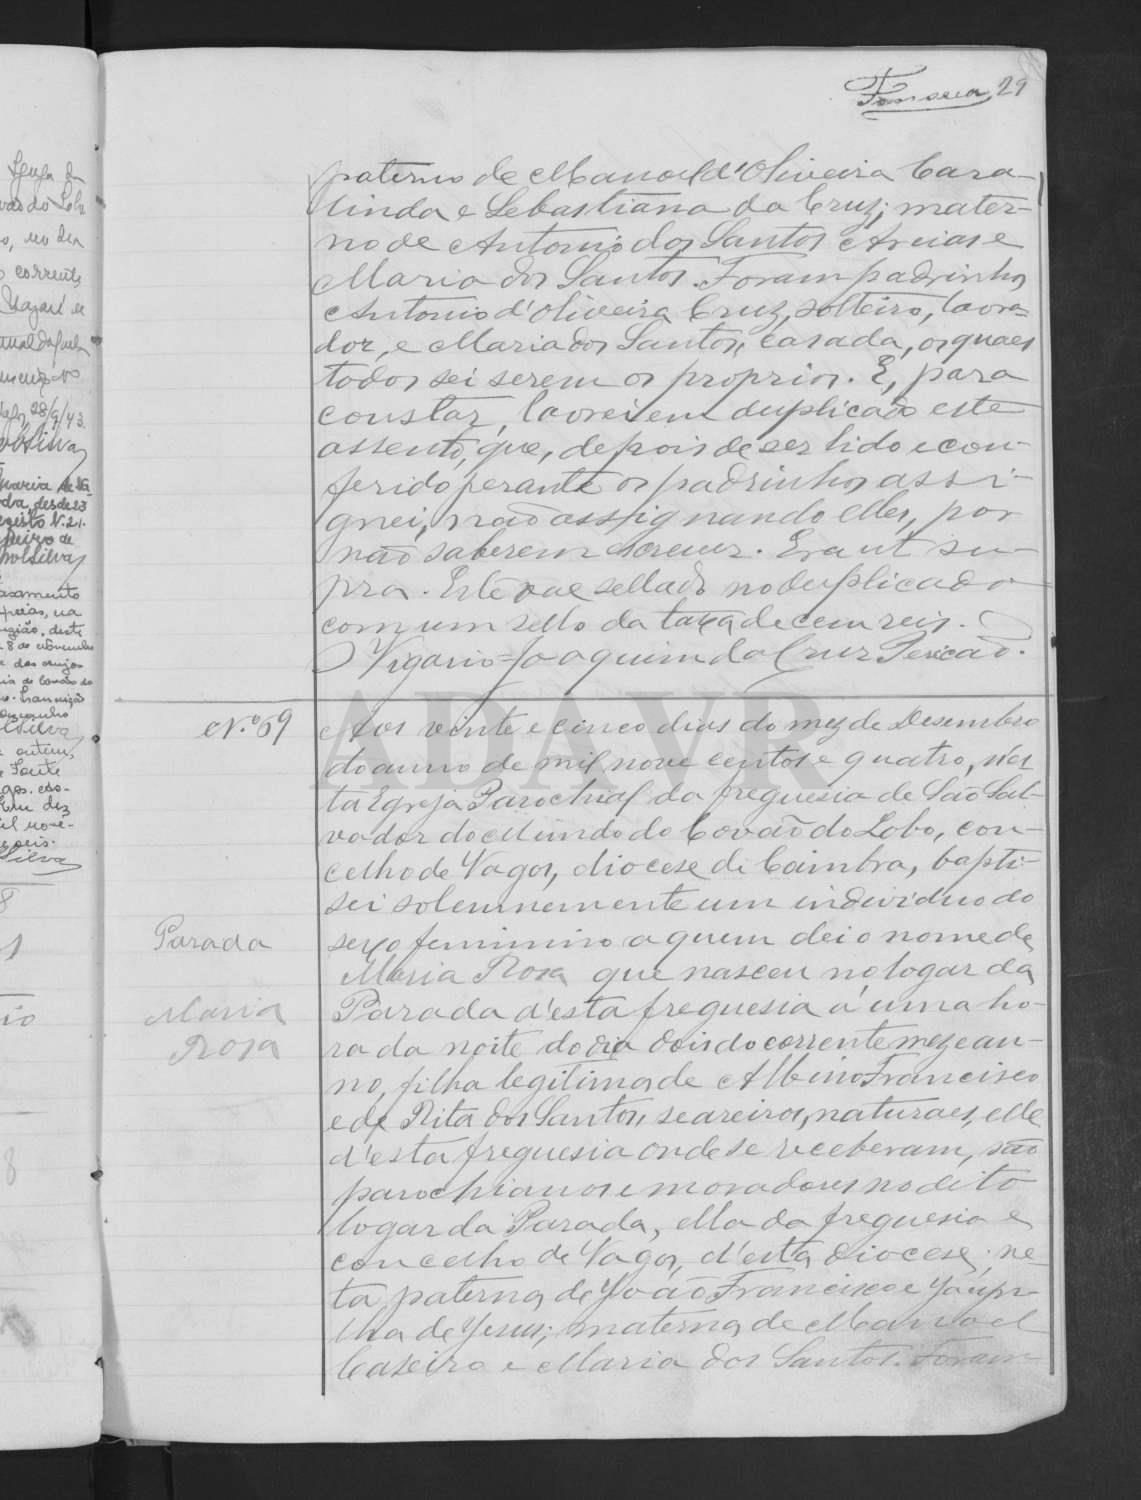 Fonseca 29
paterno de Manoel d'Oliveira Cara-
linda e Sebastiana da Cruz; mater-
no de Antonio dos Santos Areias e
Maria dos Santos. Foram padrinhos
Antonio d'Oliveira Cruz, solteiro, lavra-
dor, e Maria dos Santos, casada, os quaes
todos sei serem os proprios. E, para
constar, lavrei em duplicado este
assento, que, depois de ser lido e con-
ferido perante os padrinhos assi-
gnei, não assignando elles, por
não saberem escrever. Era ut su-
pra. Este vae sellado no duplicado
com um sello da taxa de cem reis.
O Vigario = Joaquim da Cruz Pericão.
N.º 69
Aos vinte e cinco dias do mez de Desembro
do anno de mil nove centos e quatro, n'es-
ta Egreja Parochial da freguesia de São Sal-
vador do Mundo do Covão do Lobo, con-
celho de Vagos, diocese de Coimbra, bapti-
sei solemnemente um individuo do
sexo feminino a quem dei o nome de
Maria Rosa que nasceu no logar da
Parada d'esta freguesia á uma ho-
ra da noite do dia dois do corrente mez e an-
no, filha legitima de Albino Francisco
e de Rita dos Santos, seareiros, naturaes, elle
d'esta freguesia onde se receberam, são
parochianos e moradores no dito
logar da Parada, ella da freguesia e
concelho de Vagos, d'esta diocese; ne-
ta paterna de João Francisco e
de Jesus; materna de Manoel
Caseiro e Maria dos Santos. Foram
Parada
Maria
Rosa
ADAVR
corrente
28/9/43.
Silva
desde 23
N.º 21.
Silva
casamento
8 de Novembro
Silva
Silva
8